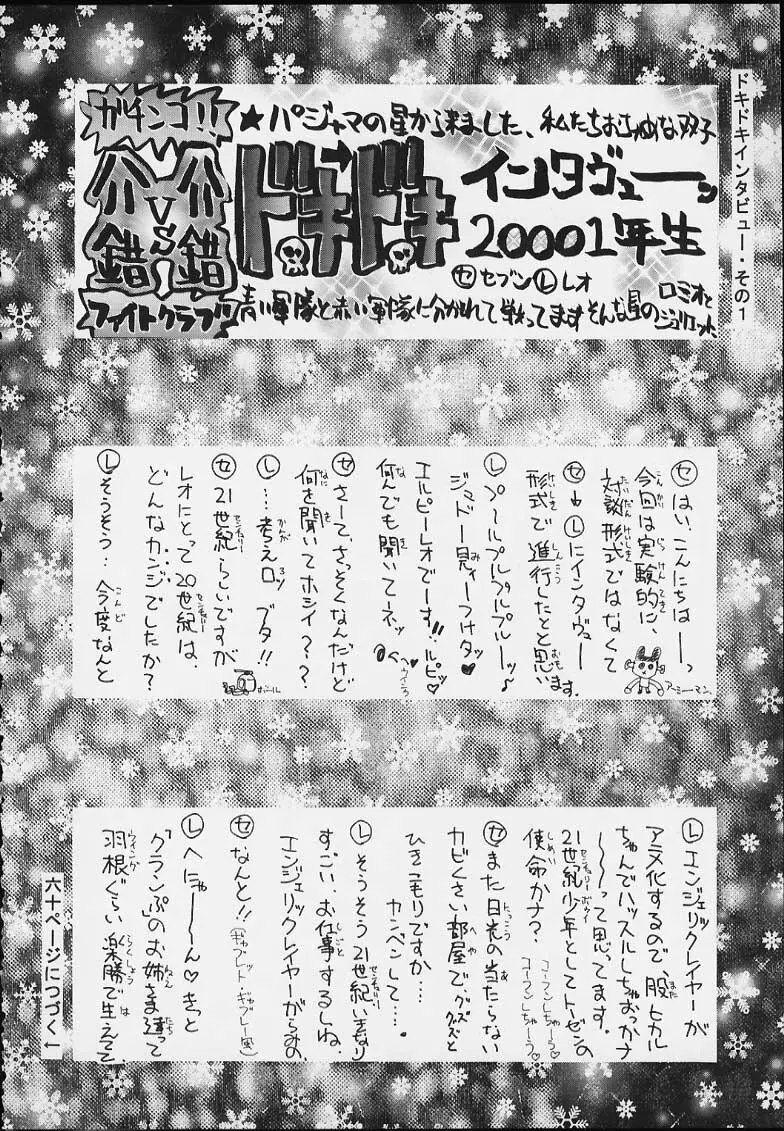 ドキドキインタビュー・その1
ガチンコ!!
介錯
VS
介錯
ファイトクラブ
★パジャマの星から来ました、私たちおちゃめな双子
ドッキドキ
インタヴューーッ
20001年生
セ セブン レ レオ
青い軍隊と赤い軍隊に分かれて戦ってますそんな星の
ロミオと
ジュリエット
セ はい、こんにちはーっ
今回は実験的に、
対談形式ではなくて
セ→レにインタヴュー
形式で進行したとと思います。
アーミーマン。
レ プ〜ルプルプルプルーッ♪
ジュドー見ィーつけタッ♥
エルピーレオでーす!!ルピッ♡
何んでも聞いてーネッ
セ さーて、さっそくなんだけど
何を聞いてホシイ??
レ …考えロッ ブタ!!
セ 21世紀らしいですが
レオにとって20世紀は、
どんなカンジでしたか?
ボール
レ そうそう…今度なんと
レ エンジェリックレイヤーが
アニメ化するので、股ヒカル
ちゃんでハッスルしちゃおっかナ
〜〜〜って思ってます。
21世紀少年としてトーゼンの
使命かナ? コーフンしちゃーう♡
コーフンしちゃーう♡
セ また日光の当たらない
カビくさい部屋で、グズグズと
ひきこもりですか…
カンベンして…。
レ そうそう21世紀いきなり
すごい、お仕事するしね、
エンジェリックレイヤーがらみの
セ なんと!!(ギャブレット・ギャブレー風)
レ へにゃ〜〜ん♡きっと
「クランプ」のお姉さま達って
羽根ぐらい楽勝で生えてて
六十ページにつづく↓